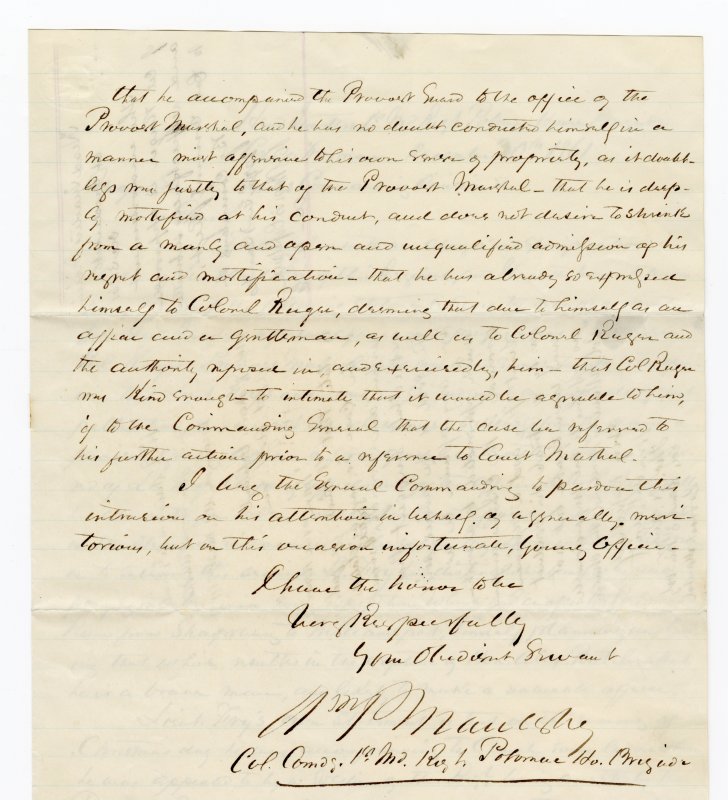 that he accompanied the Provost Guard to the office of the
Provost Marshal, and he has no doubt conducted himself in a
manner most offensive to his own sense of propriety, as it doubt-
less was justly to that of the Provost Marshal - that he is deep-
ly mortified at his conduct, and does not desire to shrink
from a manly and open and unqualified admission of his
regret and mortification - that he has already so expressed
himself to Colonel Ruger, deeming that due to himself as an
officer and a gentleman, as well as to Colonel Ruger and
the authority reposed in, and exercised by, him - that Col Ruger
was kind enough to intimate that it would be agreeable to him,
if to the Commanding General that the case be referred to
his further action prior to a reference to Court Martial.
I beg the General Commanding to pardon this
intrusion on his attention in behalf of a generally meri-
torious, but on this occasion unfortunate, young Officer -
I have the honor to be
Very Respectfully
Your Obedient Servant
Wm P Maulsby
Col. Comdg. 1st Md. Regt. Potomac Ho. Brigade